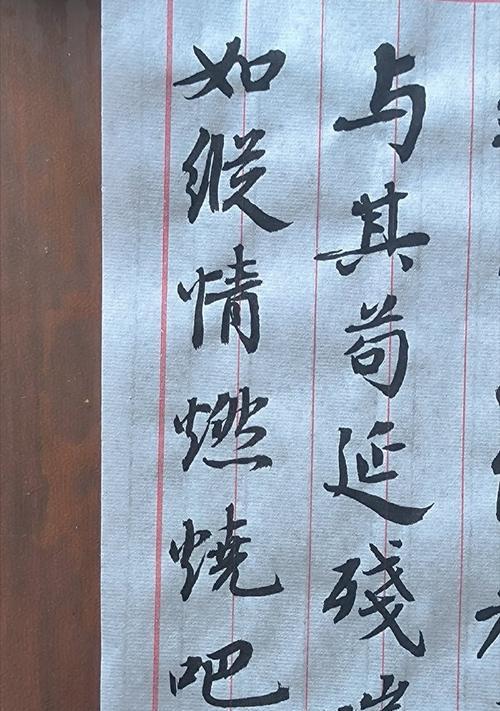 与其苟延残
如纵情燃烧吧